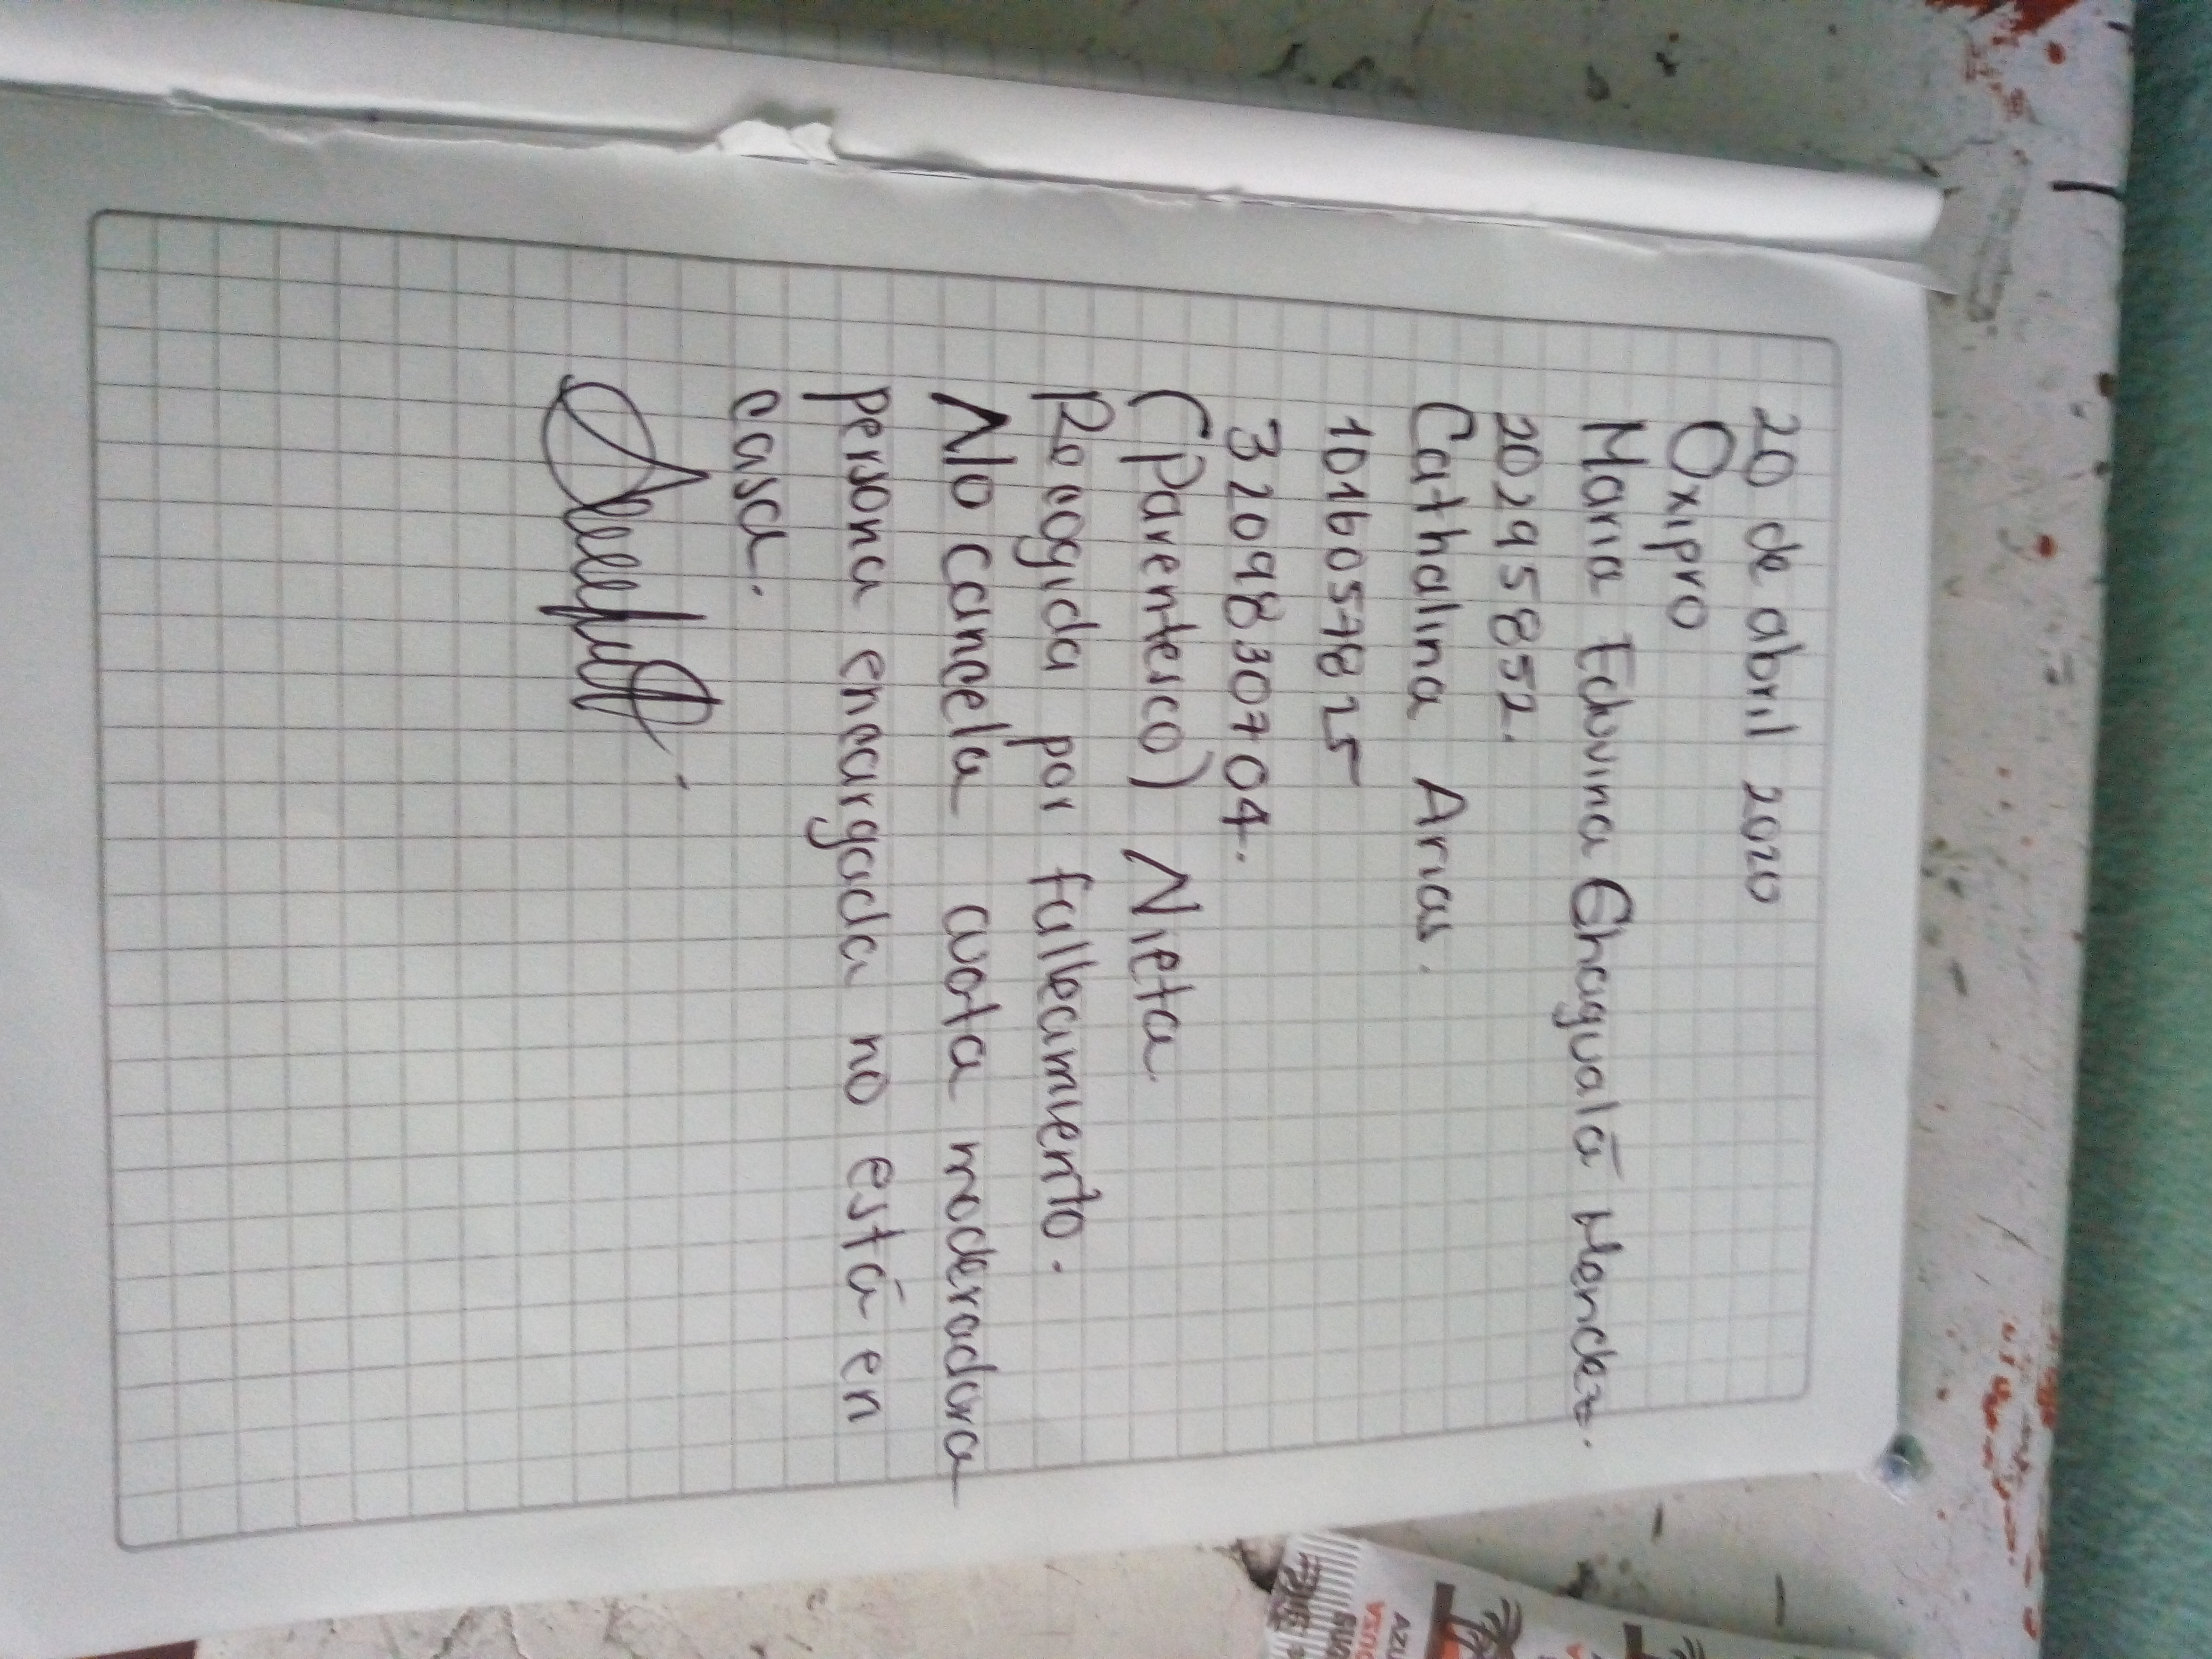 20 de abril 2020
Oxipro
Maria Eduvina Chagualá Mendez.
20295852.
Cathalina Arias.
1016057825
3209830704.
(Parentesco) Nieta
Recogida por falleamiento.
No cancela cuota moderadora
persona encargada no está en
casa.